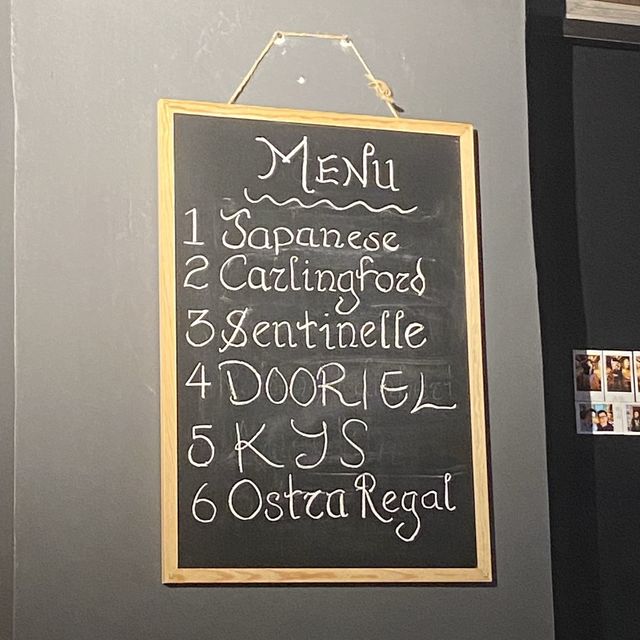 MENU
1 Japanese
2 Carlingford
3 Sentinelle
4 DOORIEL
5 KYS
6 Ostra Regal